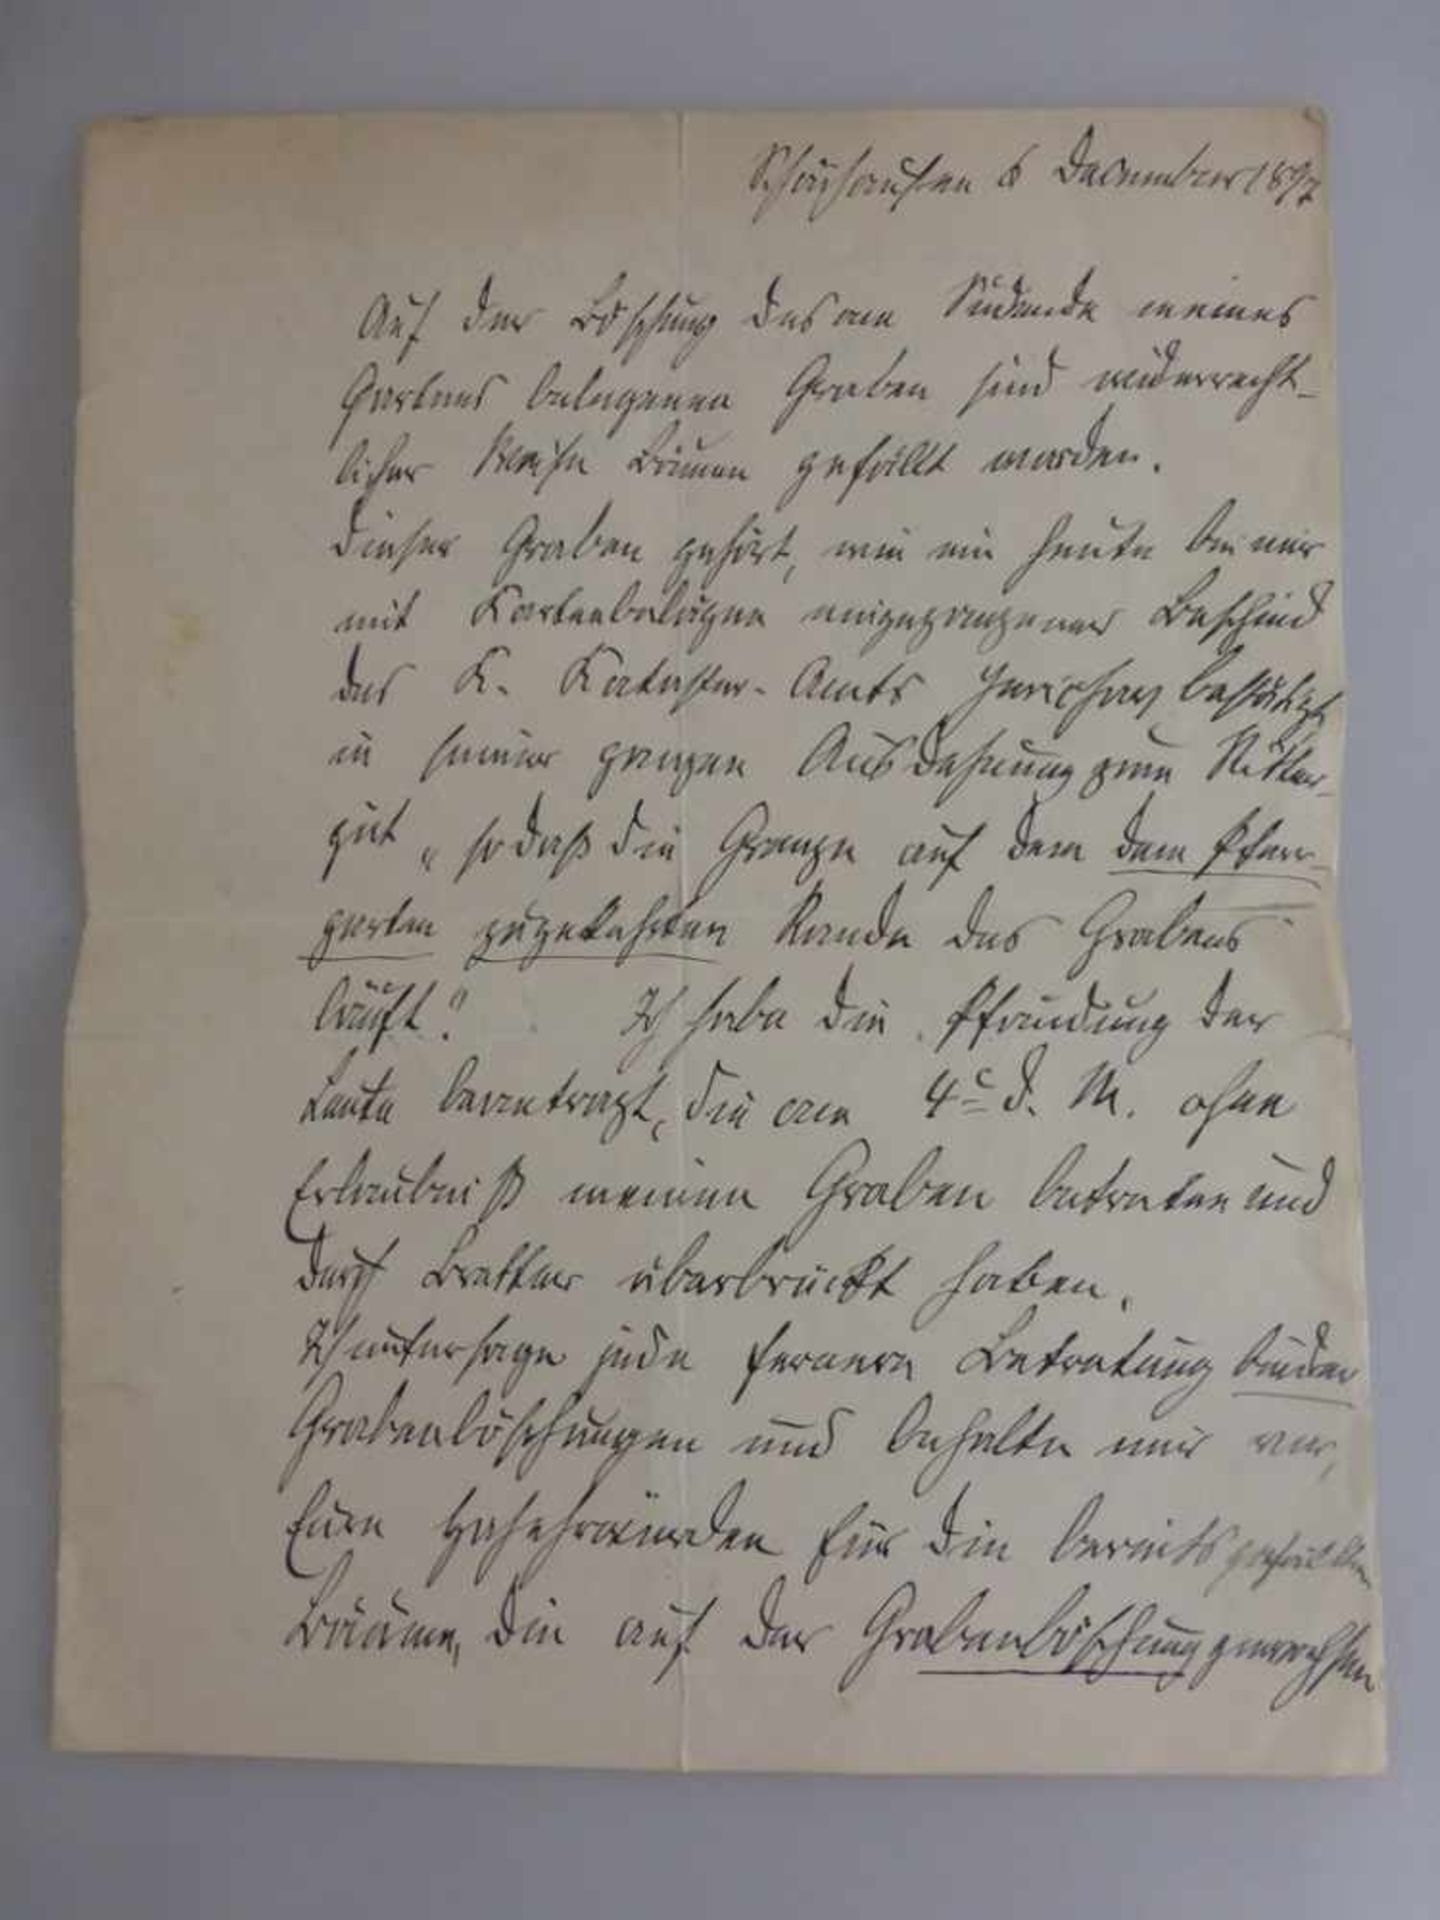 Schönhausen 6 Dezember 1897
Auf der Böschung des am Südende meines
Gartens belegenen Graben sind widerrecht-
licher Weise Bäume gefällt worden.
Dieser Graben gehört, wie ein heute bei mir
mit Kartenbelägen eingegangener Bescheid
des K. Kataster-Amts Jerichow bestätigt
in seiner ganzen Ausdehnung zum Ritter-
gut „sodaß die Grenze auf dem dem Pfarr-
garten zugekehrten Rande des Grabens
läuft". Ich habe die Pfändung der
Leute beantragt, die am 4t d. M. ohne
Erlaubniß meinen Graben betreten und
durch Bretter überbrückt haben.
Ich untersage jede fernere Betretung beider
Grabenböschungen und behalte mir vor,
Eure Hochehrwürden für die bereits gefällten
Bäume, die auf der Grabenböschung gewachsen